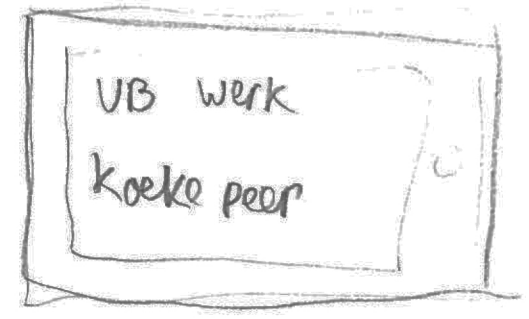 UB werk
koeke peer